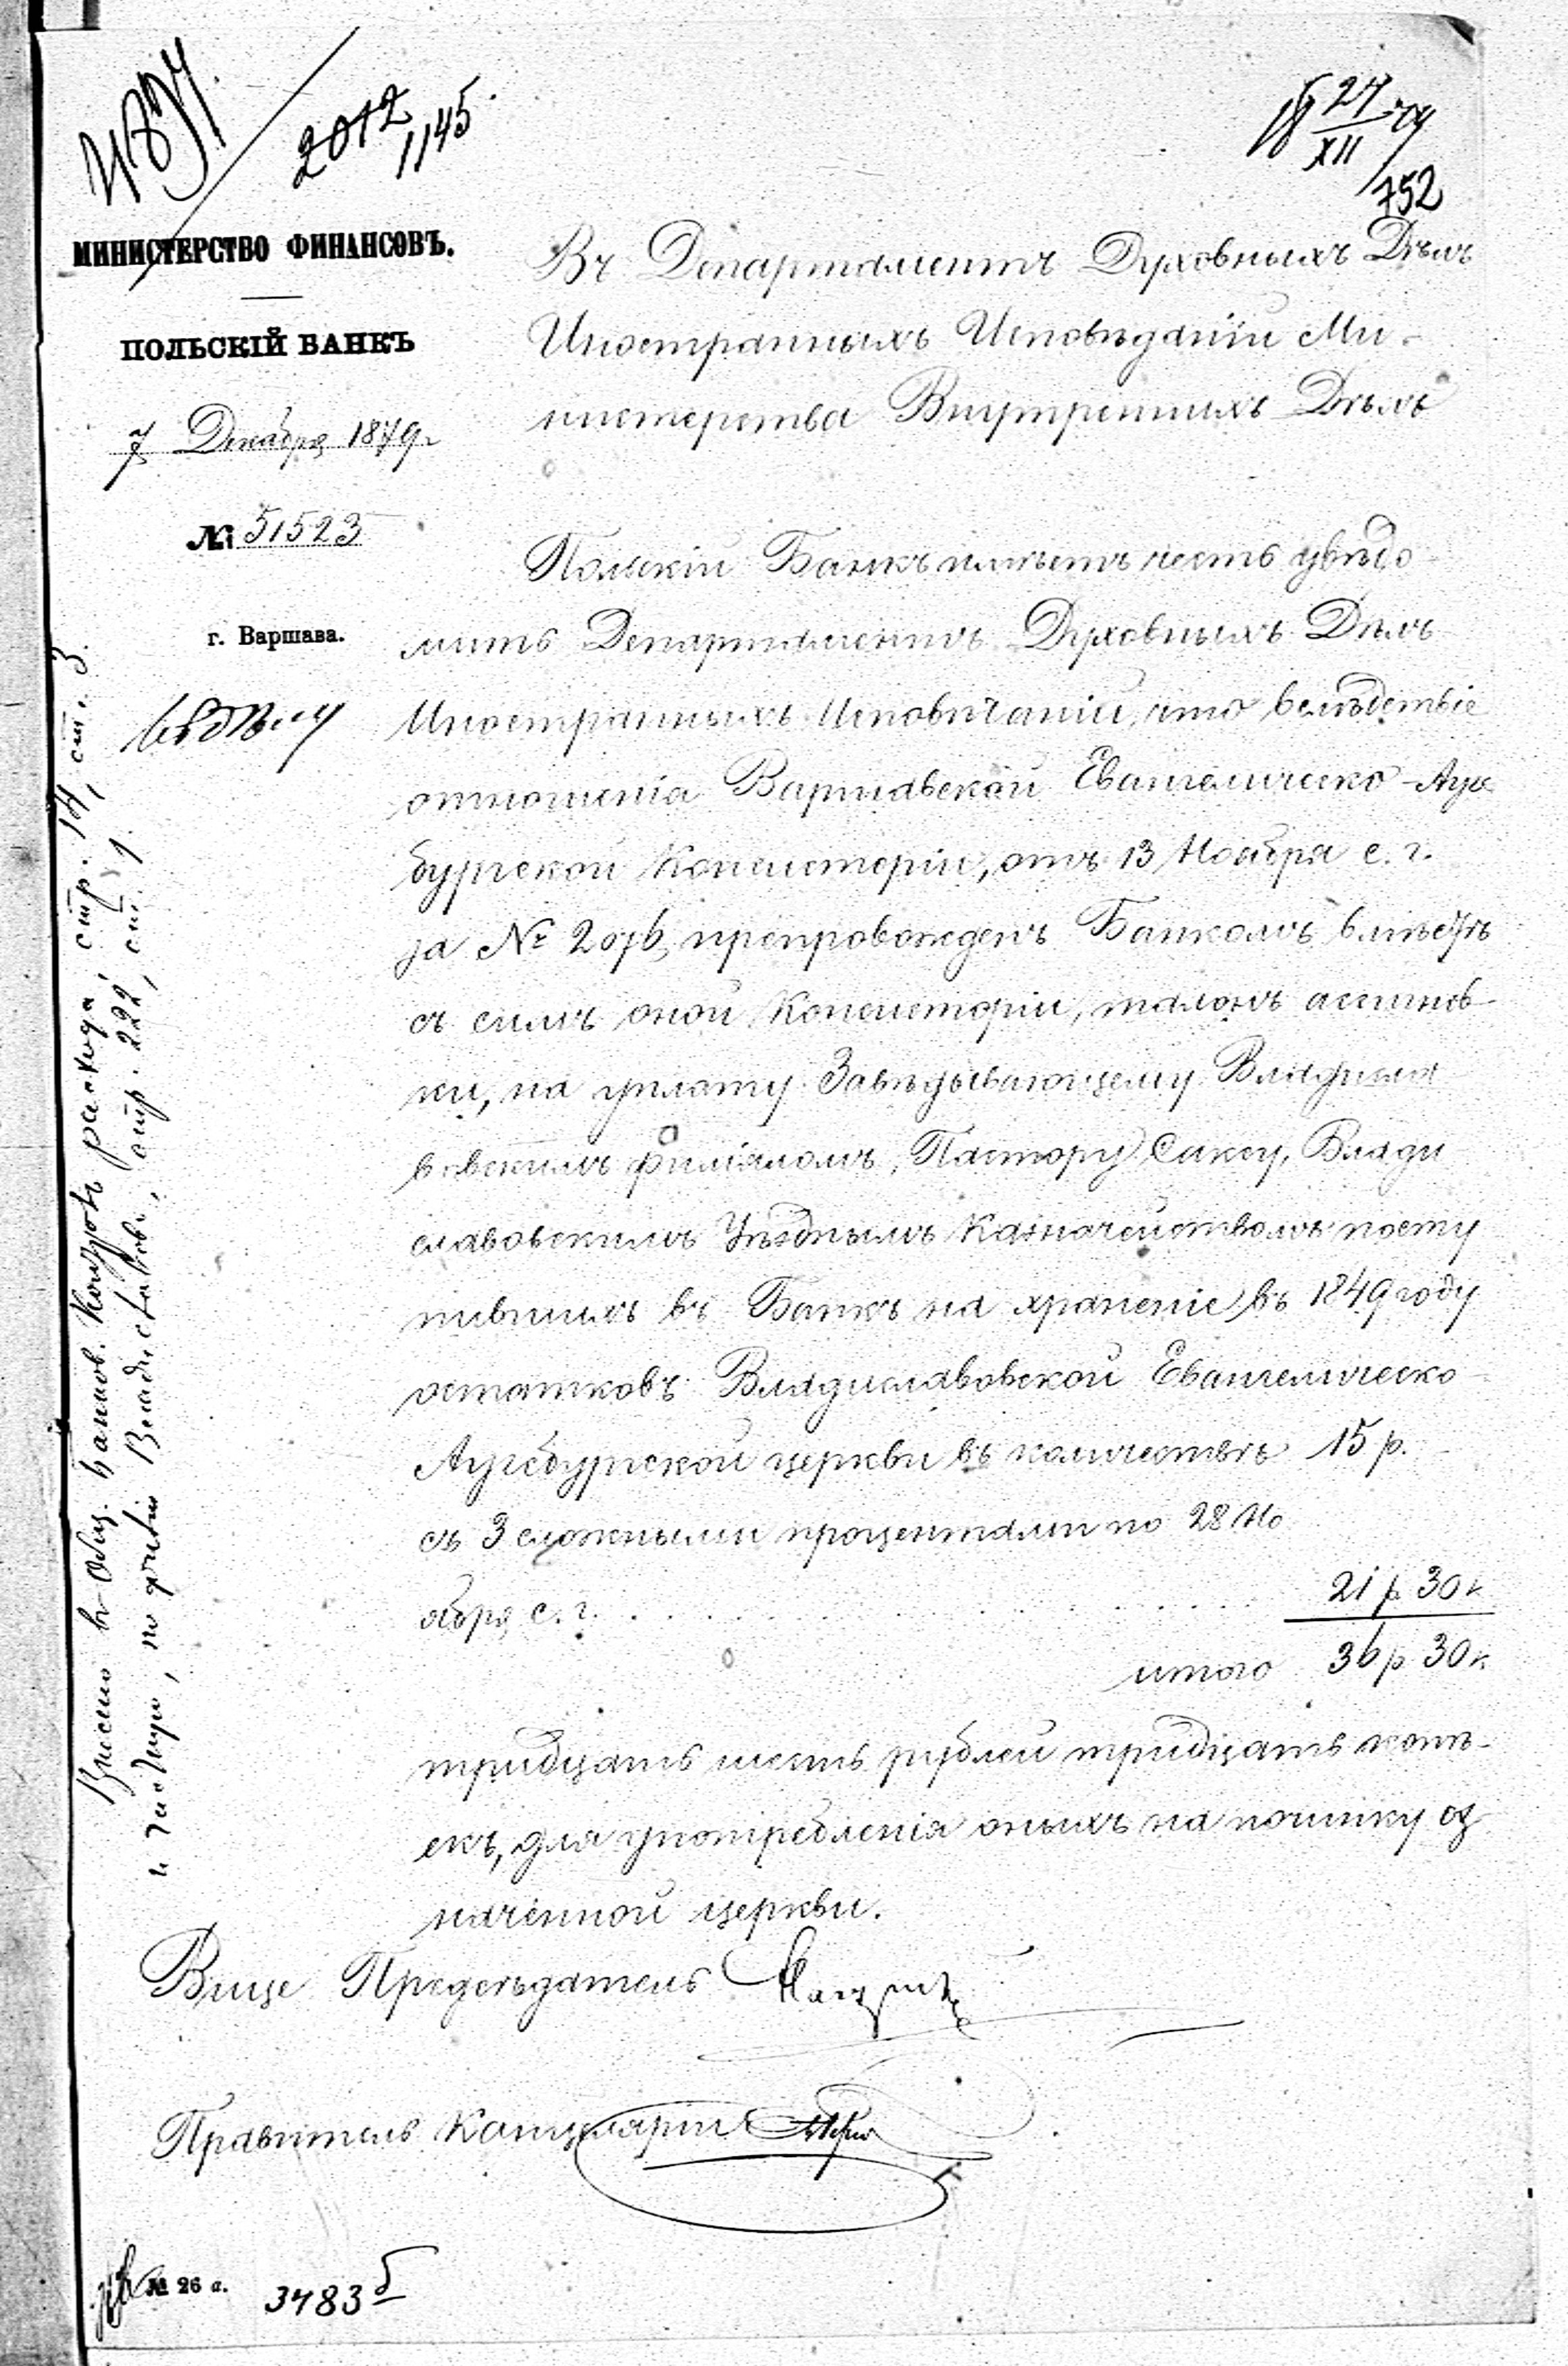 2012
1145
27
XII
752
МИНИСТЕРСТВО ФИНАНСОВЪ.
ПОЛЬСКІЙ БАНКЪ
7 Декабря 1879 г.
№ 51523
г. Варшава.
Въ Департаментъ Духовныхъ Дѣлъ
Иностранныхъ Исповѣданій Ми-
нистерства Внутреннихъ Дѣлъ
Польскій Банкъ имѣетъ честь увѣдо-
мить Департаментъ Духовныхъ Дѣлъ
Иностранныхъ Исповѣданій, что вслѣдствіе
отношенія Варшавской Евангелическо-Аугс
бургской Консисторіи, отъ 13 Ноября с. г.
за № 2076, препровожденъ Банкомъ вмѣстѣ
съ симъ оной Консисторіи, талонъ ассигнов-
ки, на уплату Завѣдывающему Владисла
вовскимъ филіаломъ, Пастору Саксу, Влади
славовскимъ Уѣзднымъ Казначействомъ посту
пившихъ въ Банкъ на храненіе въ 1849 году
остатковъ Владиславовской Евангелическо-
Аугсбургской церкви въ количествѣ 15 р.
съ 3 сложными процентами по 28 Но
ября с. г. . . . . . . . . . . . 21 р 30 к
итого 36 р 30 к
тридцать шесть рублей тридцать копѣ-
екъ, для употребленія оныхъ на починку оз
наченной церкви.
Вице Предсѣдатель
Правитель Канцеляріи
расхода, стр. 14, ст. 3.
стр. 222, ст. 1.
№ 26 а.
3483 б